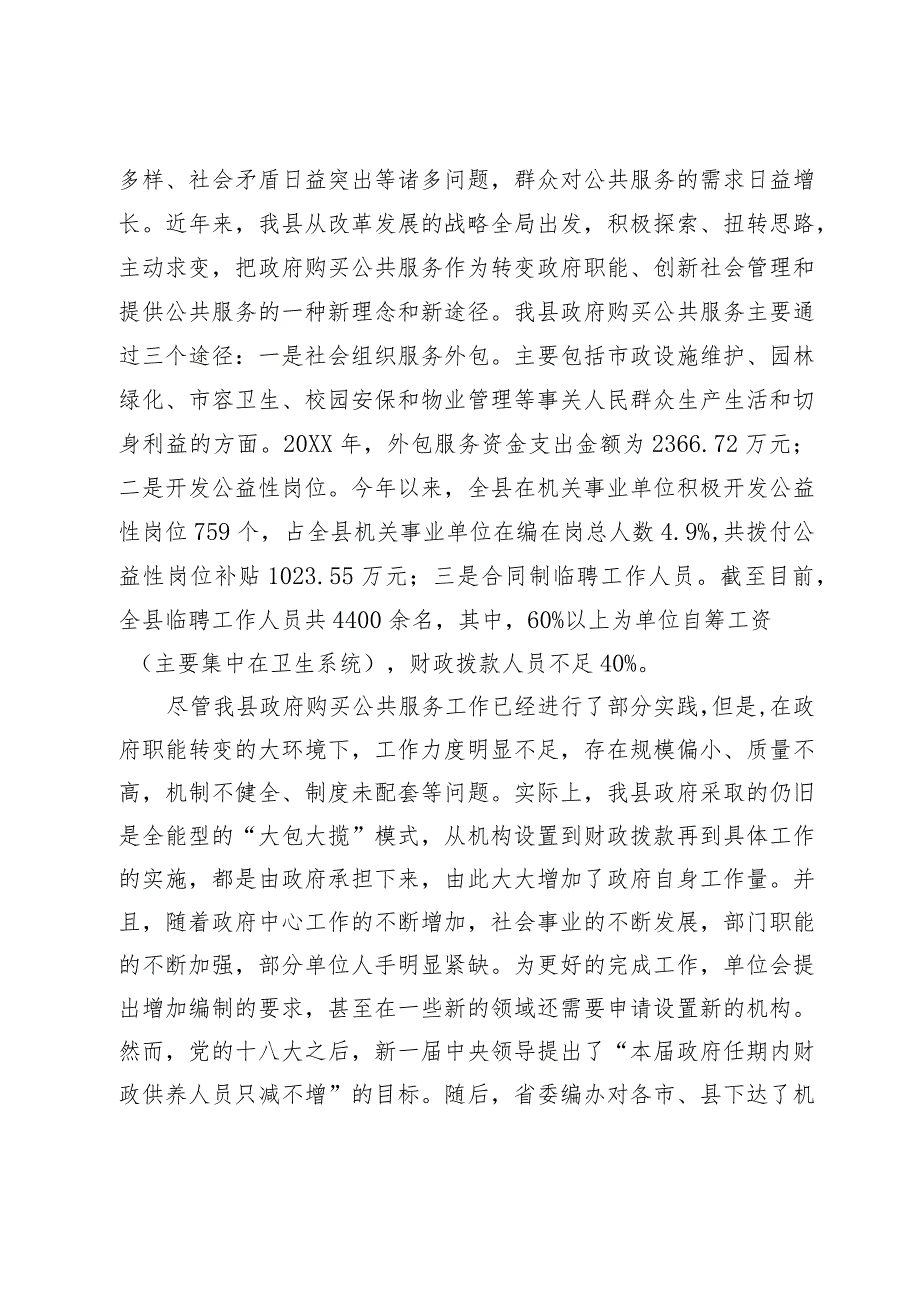 多样、社会矛盾日益突出等诸多问题，群众对公共服务的需求日益增
长。近年来，我县从改革发展的战略全局出发，积极探索、扭转思路，
主动求变，把政府购买公共服务作为转变政府职能、创新社会管理和
提供公共服务的一种新理念和新途径。我县政府购买公共服务主要通
过三个途径：一是社会组织服务外包。主要包括市政设施维护、园林
绿化、市容卫生、校园安保和物业管理等事关人民群众生产生活和切
身利益的方面。20XX 年，外包服务资金支出金额为 2366.72 万元；
二是开发公益性岗位。今年以来，全县在机关事业单位积极开发公益
性岗位 759 个，占全县机关事业单位在编在岗总人数 4.9%,共拨付公
益性岗位补贴 1023.55 万元；三是合同制临聘工作人员。截至目前，
全县临聘工作人员共 4400 余名，其中，60%以上为单位自筹工资
（主要集中在卫生系统），财政拨款人员不足 40%。
尽管我县政府购买公共服务工作已经进行了部分实践,但是,在政
府职能转变的大环境下，工作力度明显不足，存在规模偏小、质量不
高，机制不健全、制度未配套等问题。实际上，我县政府采取的仍旧
是全能型的“大包大揽”模式，从机构设置到财政拨款再到具体工作
的实施，都是由政府承担下来，由此大大增加了政府自身工作量。并
且，随着政府中心工作的不断增加，社会事业的不断发展，部门职能
的不断加强，部分单位人手明显紧缺。为更好的完成工作，单位会提
出增加编制的要求，甚至在一些新的领域还需要申请设置新的机构。
然而，党的十八大之后，新一届中央领导提出了“本届政府任期内财
政供养人员只减不增”的目标。随后，省委编办对各市、县下达了机